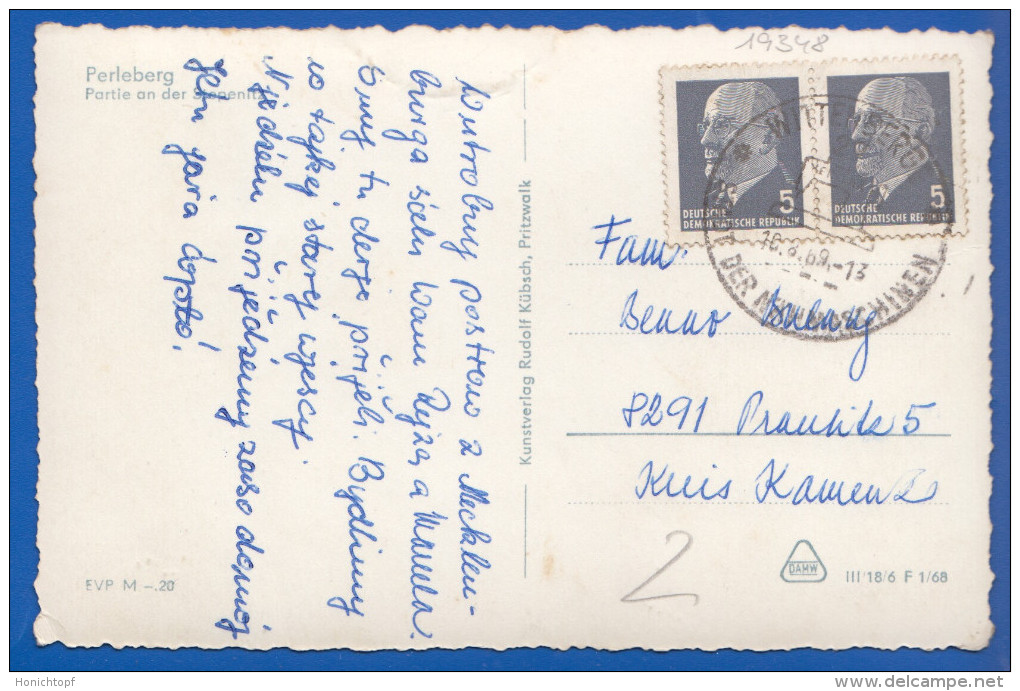 19348
Perleberg
Partie an der Stepenitz
Wutrobny postrow z Mecklen-
burga sćele Wam Hejza a Marcela.
Smy tu derje přijěli. Bydlimy
w tajkej starej wjescy.
Njedźelu pojědźemy zaso domoj
Jow jara ćopło.
EVP M –.20
Kunstverlag Rudolf Kübsch, Pritzwalk
5
DEUTSCHE
DEMOKRATISCHE REPUBLIK
5
DEUTSCHE
DEMOKRATISCHE REPUBLIK
WITTENBERG
10.8.69.-13
DER NÄHMASCHINEN
Fam.
Benno
8291 Prautitz 5
Kreis Kamenz
2
DAMW
III/18/6 F 1/68
Honichtopf
www.delcampe.net